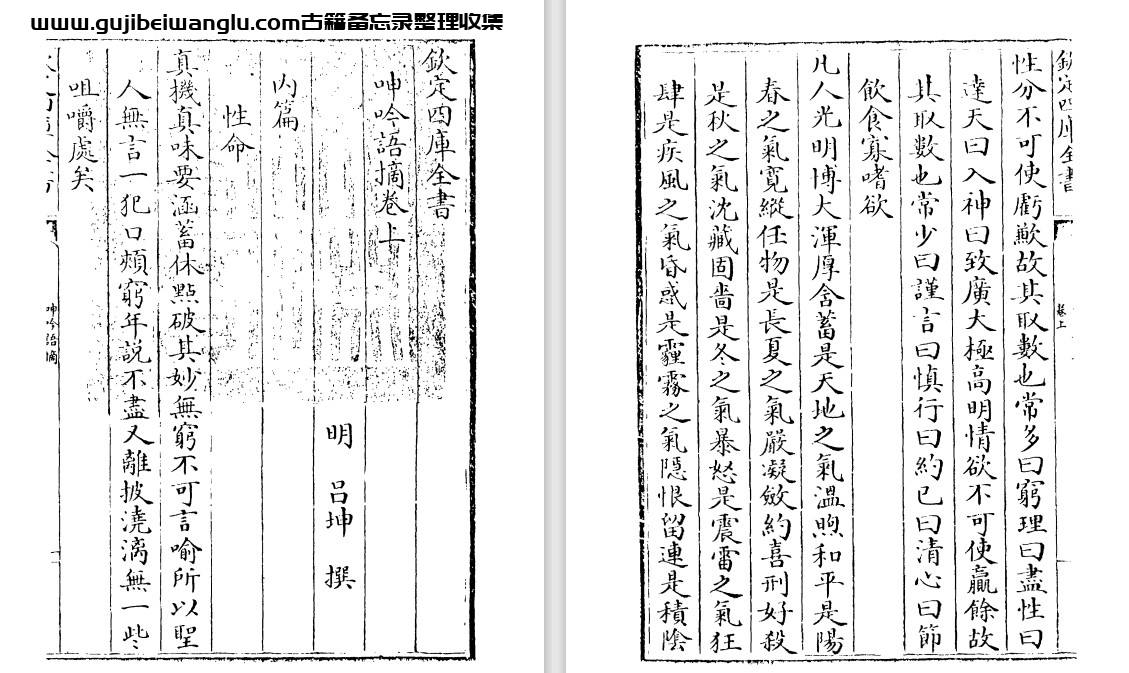 www.gujibeiwanglu.com古籍备忘录整理收集
欽定四庫全書
呻吟語摘卷上
明 呂坤 撰
内篇
性命
真機真味要涵蓄休點破其妙無窮不可言喻所以聖
人無言一犯口頰窮年說不盡又離披澆漓無一些
咀嚼處矣
呻吟語摘
欽定四庫全書
卷上
性分不可使虧歉故其取數也常多曰窮理曰盡性曰
達天曰入神曰致廣大極高明情欲不可使贏餘故
其取數也常少曰謹言曰慎行曰約己曰清心曰節
飲食寡嗜欲
凡人光明博大渾厚含蓄是天地之氣溫煦和平是陽
春之氣寬縱任物是長夏之氣嚴凝斂約喜刑好殺
是秋之氣沈藏固嗇是冬之氣暴怒是震雷之氣狂
肆是疾風之氣昏惑是霾霧之氣隱恨留連是積陰